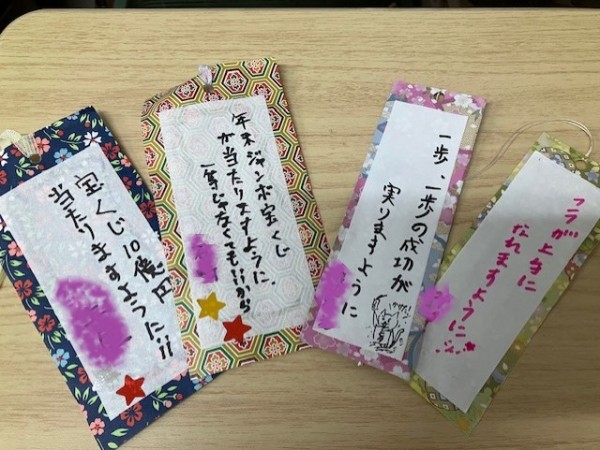 宝くじ10億円
当たりますように!!
年末ジャンボ宝くじ
が当たりますように、
一等じゃなくてもいいから
一歩、一歩の成功が
実りますように
フラが上手に
なれますように